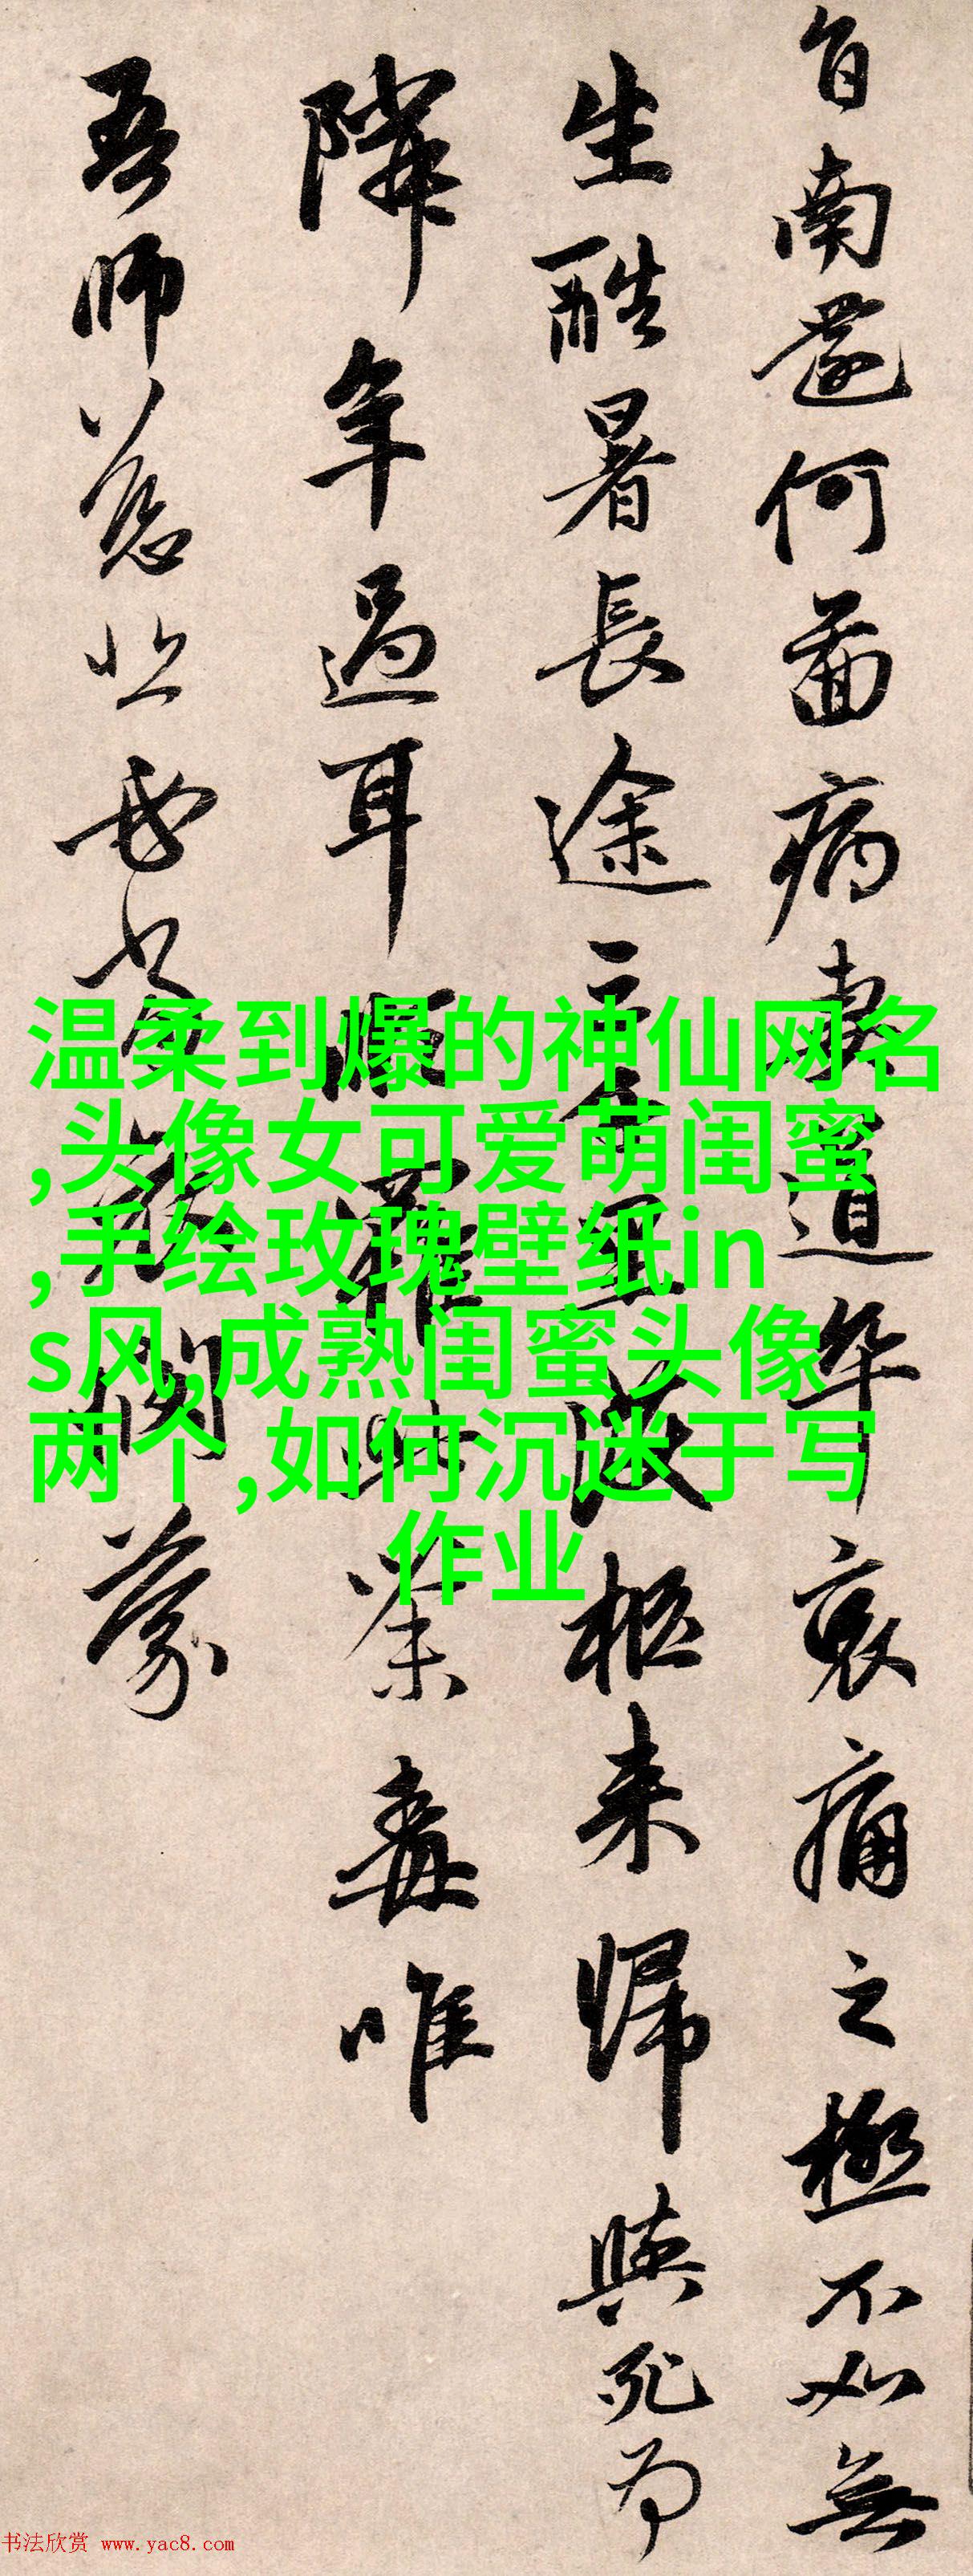 自南還何啚病妻道卒哀痛之極不如無
生酷暑長途三千里護柩來歸與死為
隣年過耳順罹此荼毒唯
吾師慈悲
蒙
温柔到爆的神仙网名
,头像女可爱萌闺蜜
,手绘玫瑰壁纸in
s风,成熟闺蜜头像
两个,如何沉迷于写
作业
书法欣赏 www.yac8.com